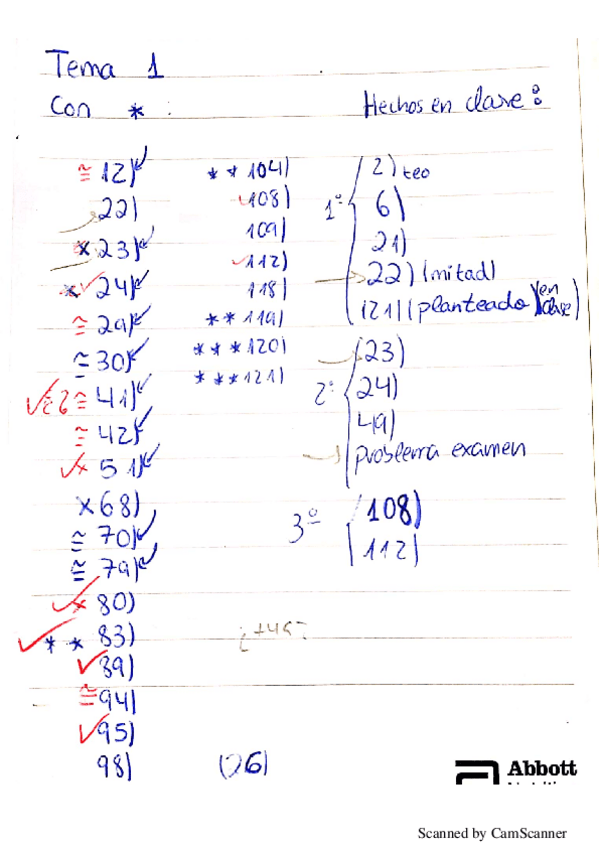 Tema 1
Con * :
≅ 12)
22)
* 23)
* 24)
≅ 29)
≅ 30)
≅ 41)
≅ 42)
* 51)
* 68)
≅ 70)
≅ 79)
* 80)
** 83)
89)
≅ 94)
95)
98)
** 104)
108)
109)
112)
118)
** 119)
*** 120)
*** 121)
(96)
Hechos en clase:
1º
2) teo
6)
21)
22) (mitad)
121) (planteado en clase)
2º
23)
24)
49)
problema examen
3º
108)
112)
Abbott
Scanned by CamScanner